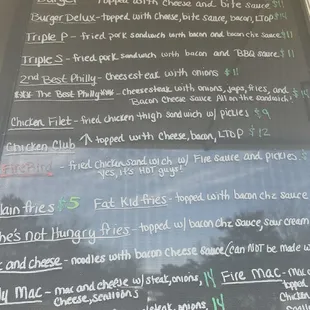 Burger topped with cheese and bite sauce $11
Burger Delux - topped with cheese, bite sauce, bacon, LTOP $14
Triple P - fried pork sandwich with bacon and bacon chz sauce $11
Triple S - fried pork sandwich with bacon and BBQ sauce $11
2nd Best Philly - Cheesesteak with onions $11
*** The Best Philly *** - cheesesteak with onions, japs, fries, and $14
Bacon Cheese Sauce All on the sandwich!
Chicken Filet - fried chicken thigh sandwich w/ pickles $9
Chicken Club ↑ topped with Cheese, bacon, LTOP $12
- fried chicken sandwich w/ Fire sauce and pickles $
yes, it's HOT guys!
ain fries $5 Fat Kid fries - topped with bacon chz sauce
he's not Hungry fries - topped w/ bacon chz sauce, sour cream
c and cheese - noodles with bacon cheese sauce (can NOT be made w
ly Mac - mac and cheese w/ steak, onions, 14 Fire Mac - mac
Cheese, scallions topped
Chicken
steak, onions, 14